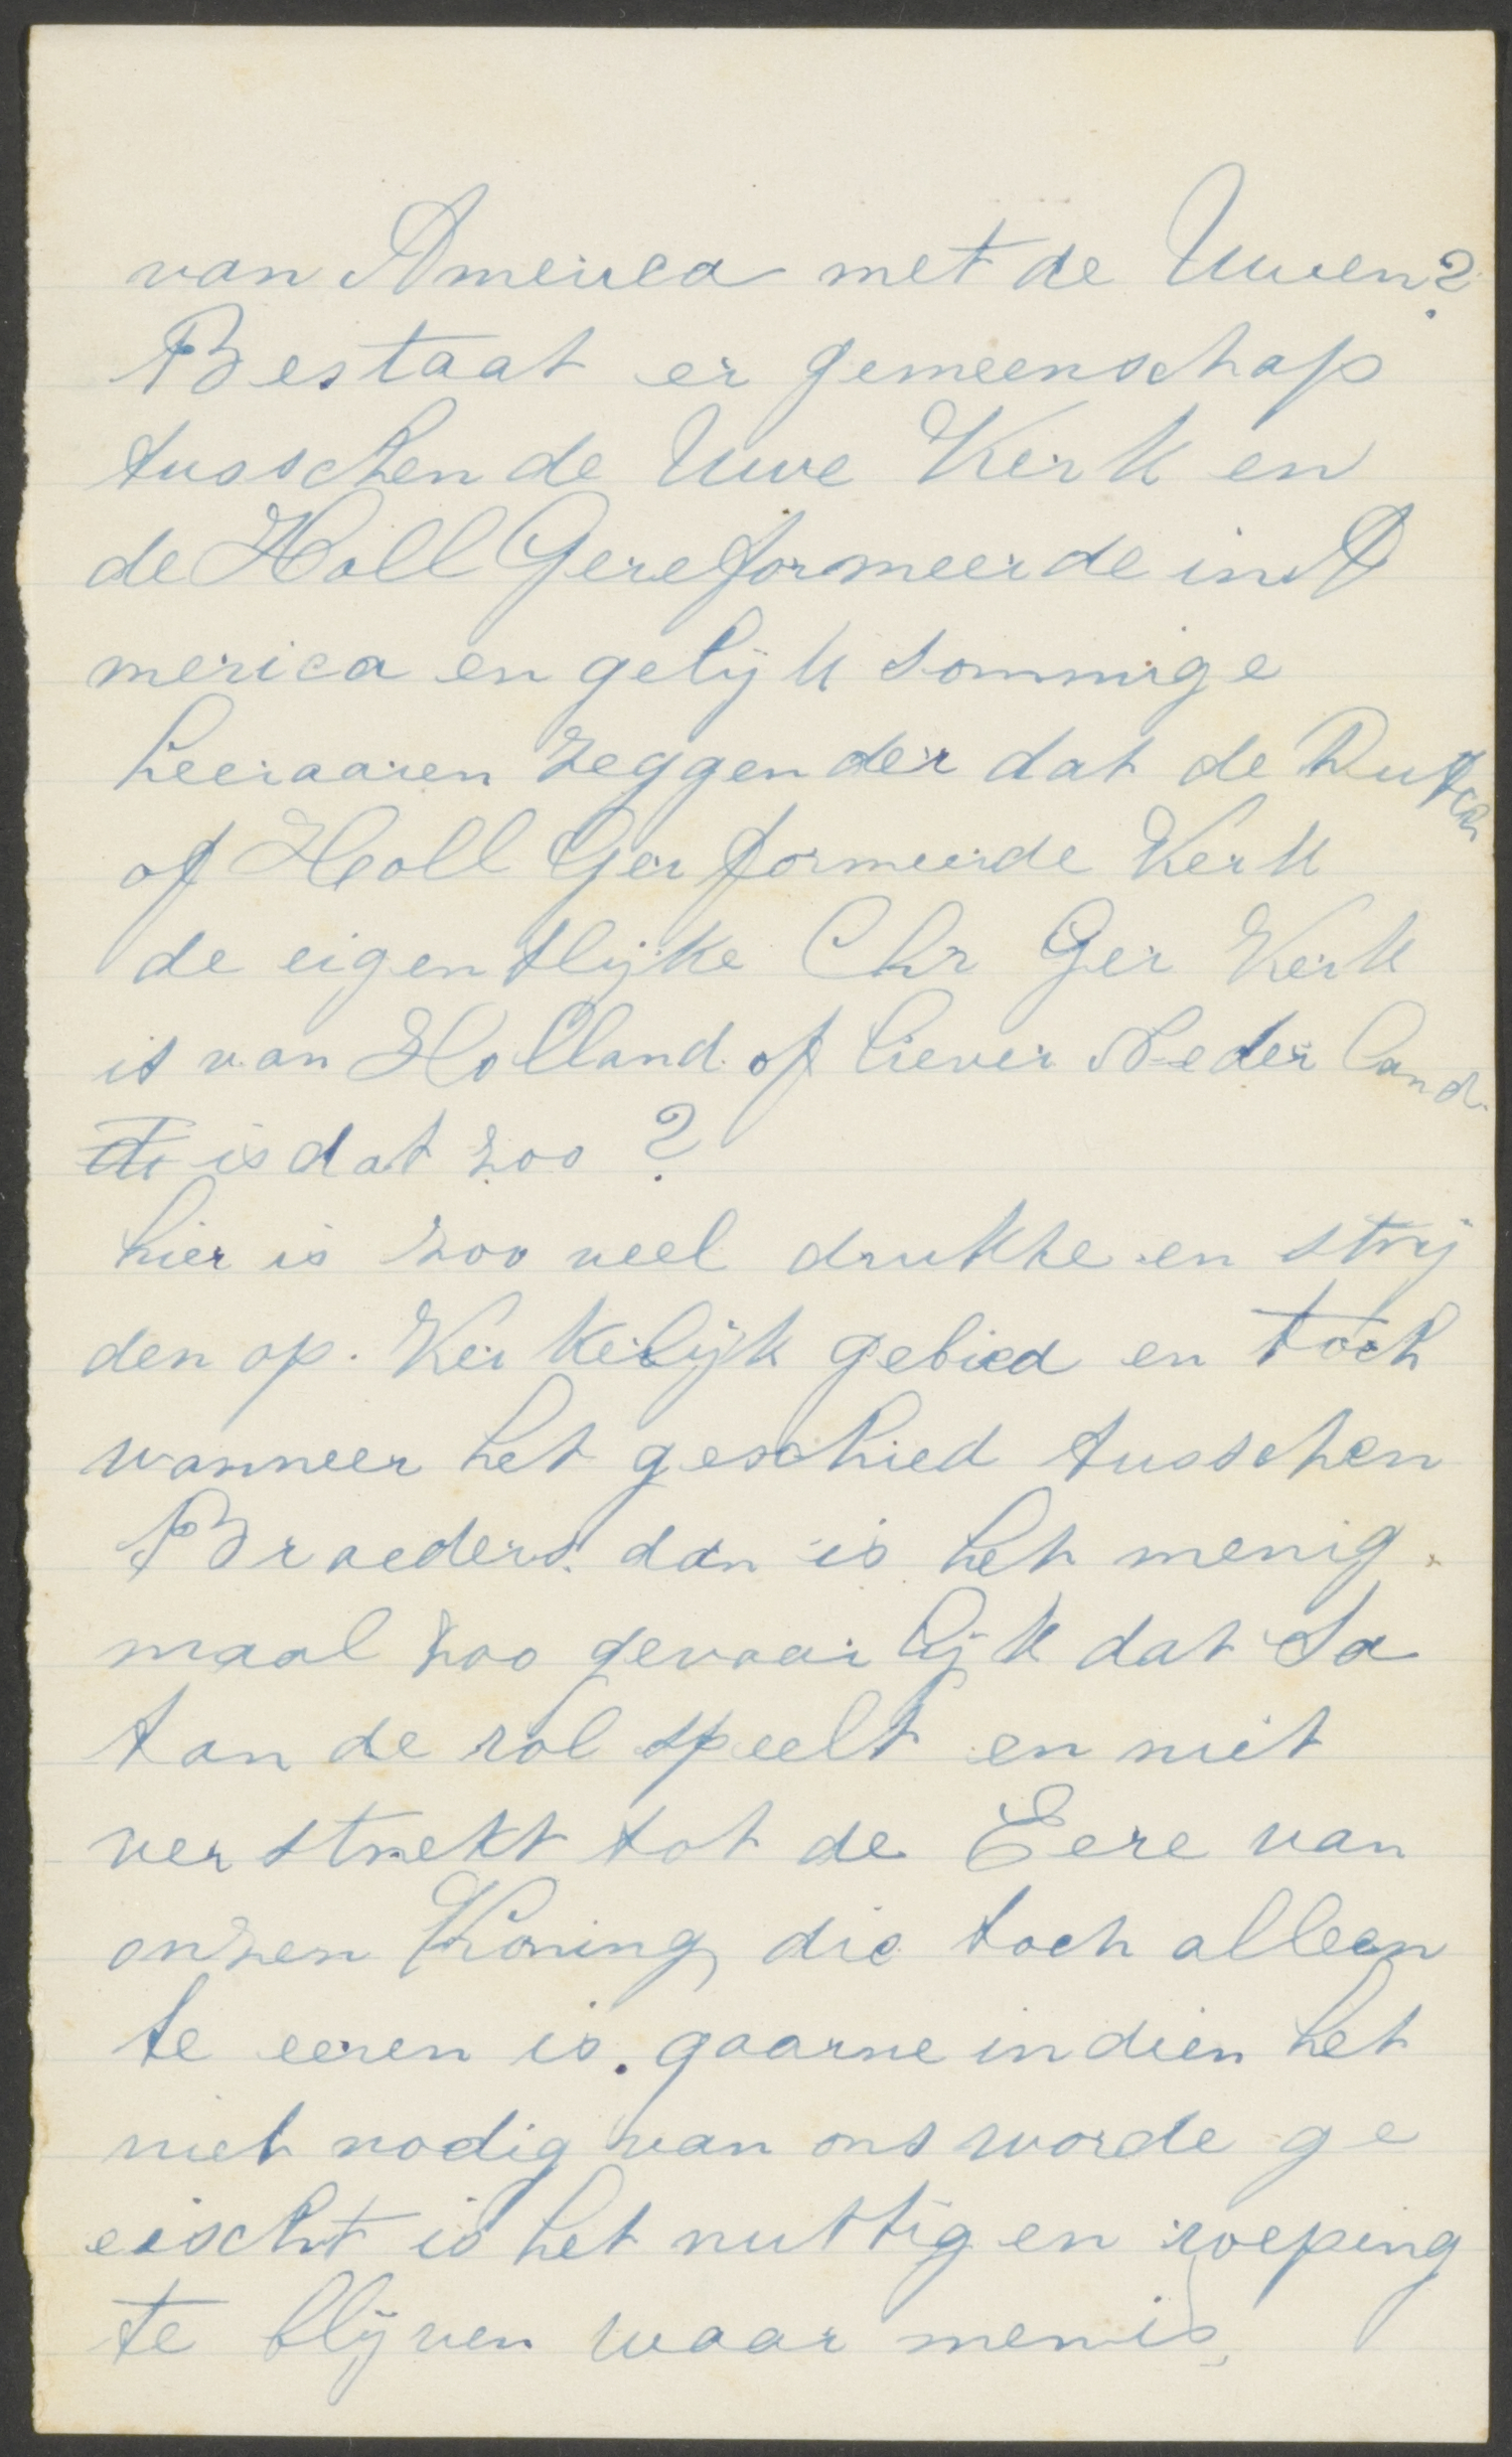 van America met de Uwen?
Bestaat er gemeenschap
tusschen de Uwe Kerk en
de Holl Gereformeerde in A
merica en gelijk sommige
Leeraaren zeggen der dat de Dutch
of Holl Gerformeerde Kerk
de eigentlijke Chr Ger Kerk
is van Holland of liever Nederland
is dat zoo?
hier is zoo veel drukke en strij
den op. Kerkelijk gebied en toch
wanneer het geschied tusschen
Broeders. dan is het menig
maal zoo gevaarlijk dat Sa
tan de rol speelt en niet
verstrekt tot de Eere van
onzen Koning die toch alleen
te eeren is. gaarne indien het
niet nodig van ons worde ge
eischt is het nuttig en roeping
te blijven waar men is,